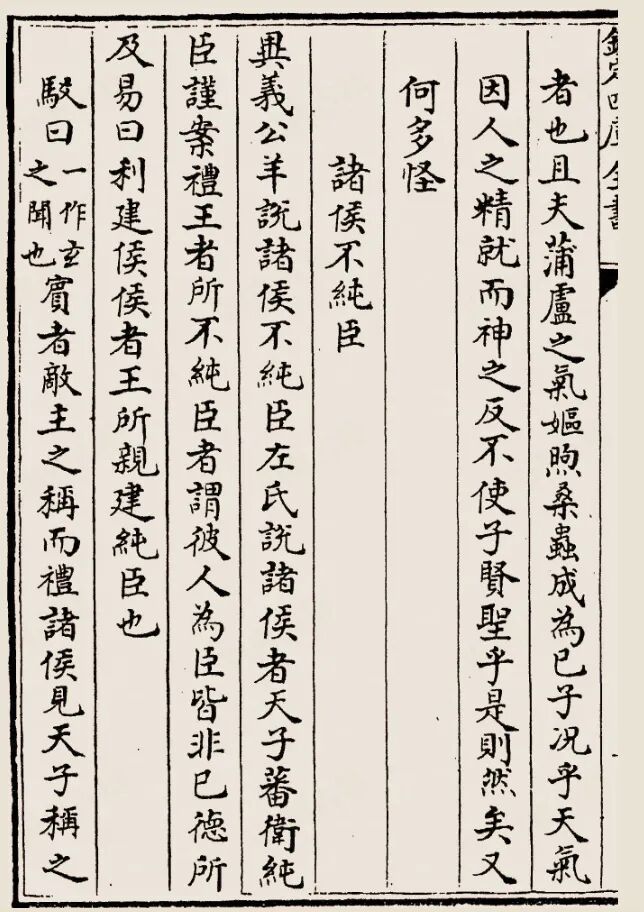 欽定四庫全書
者也且夫蒲盧之氣嫗煦桑蟲成為己子况乎天氣
因人之精就而神之反不使子賢聖乎是則然矣又
何多怪
諸侯不純臣
異義公羊説諸侯不純臣左氏説諸侯者天子蕃衛純
臣謹案禮王者所不純臣者謂彼人為臣皆非已德所
及易曰利建侯侯者王所親建純臣也
駮曰一作玄之聞也賓者敵主之稱而禮諸侯見天子稱之